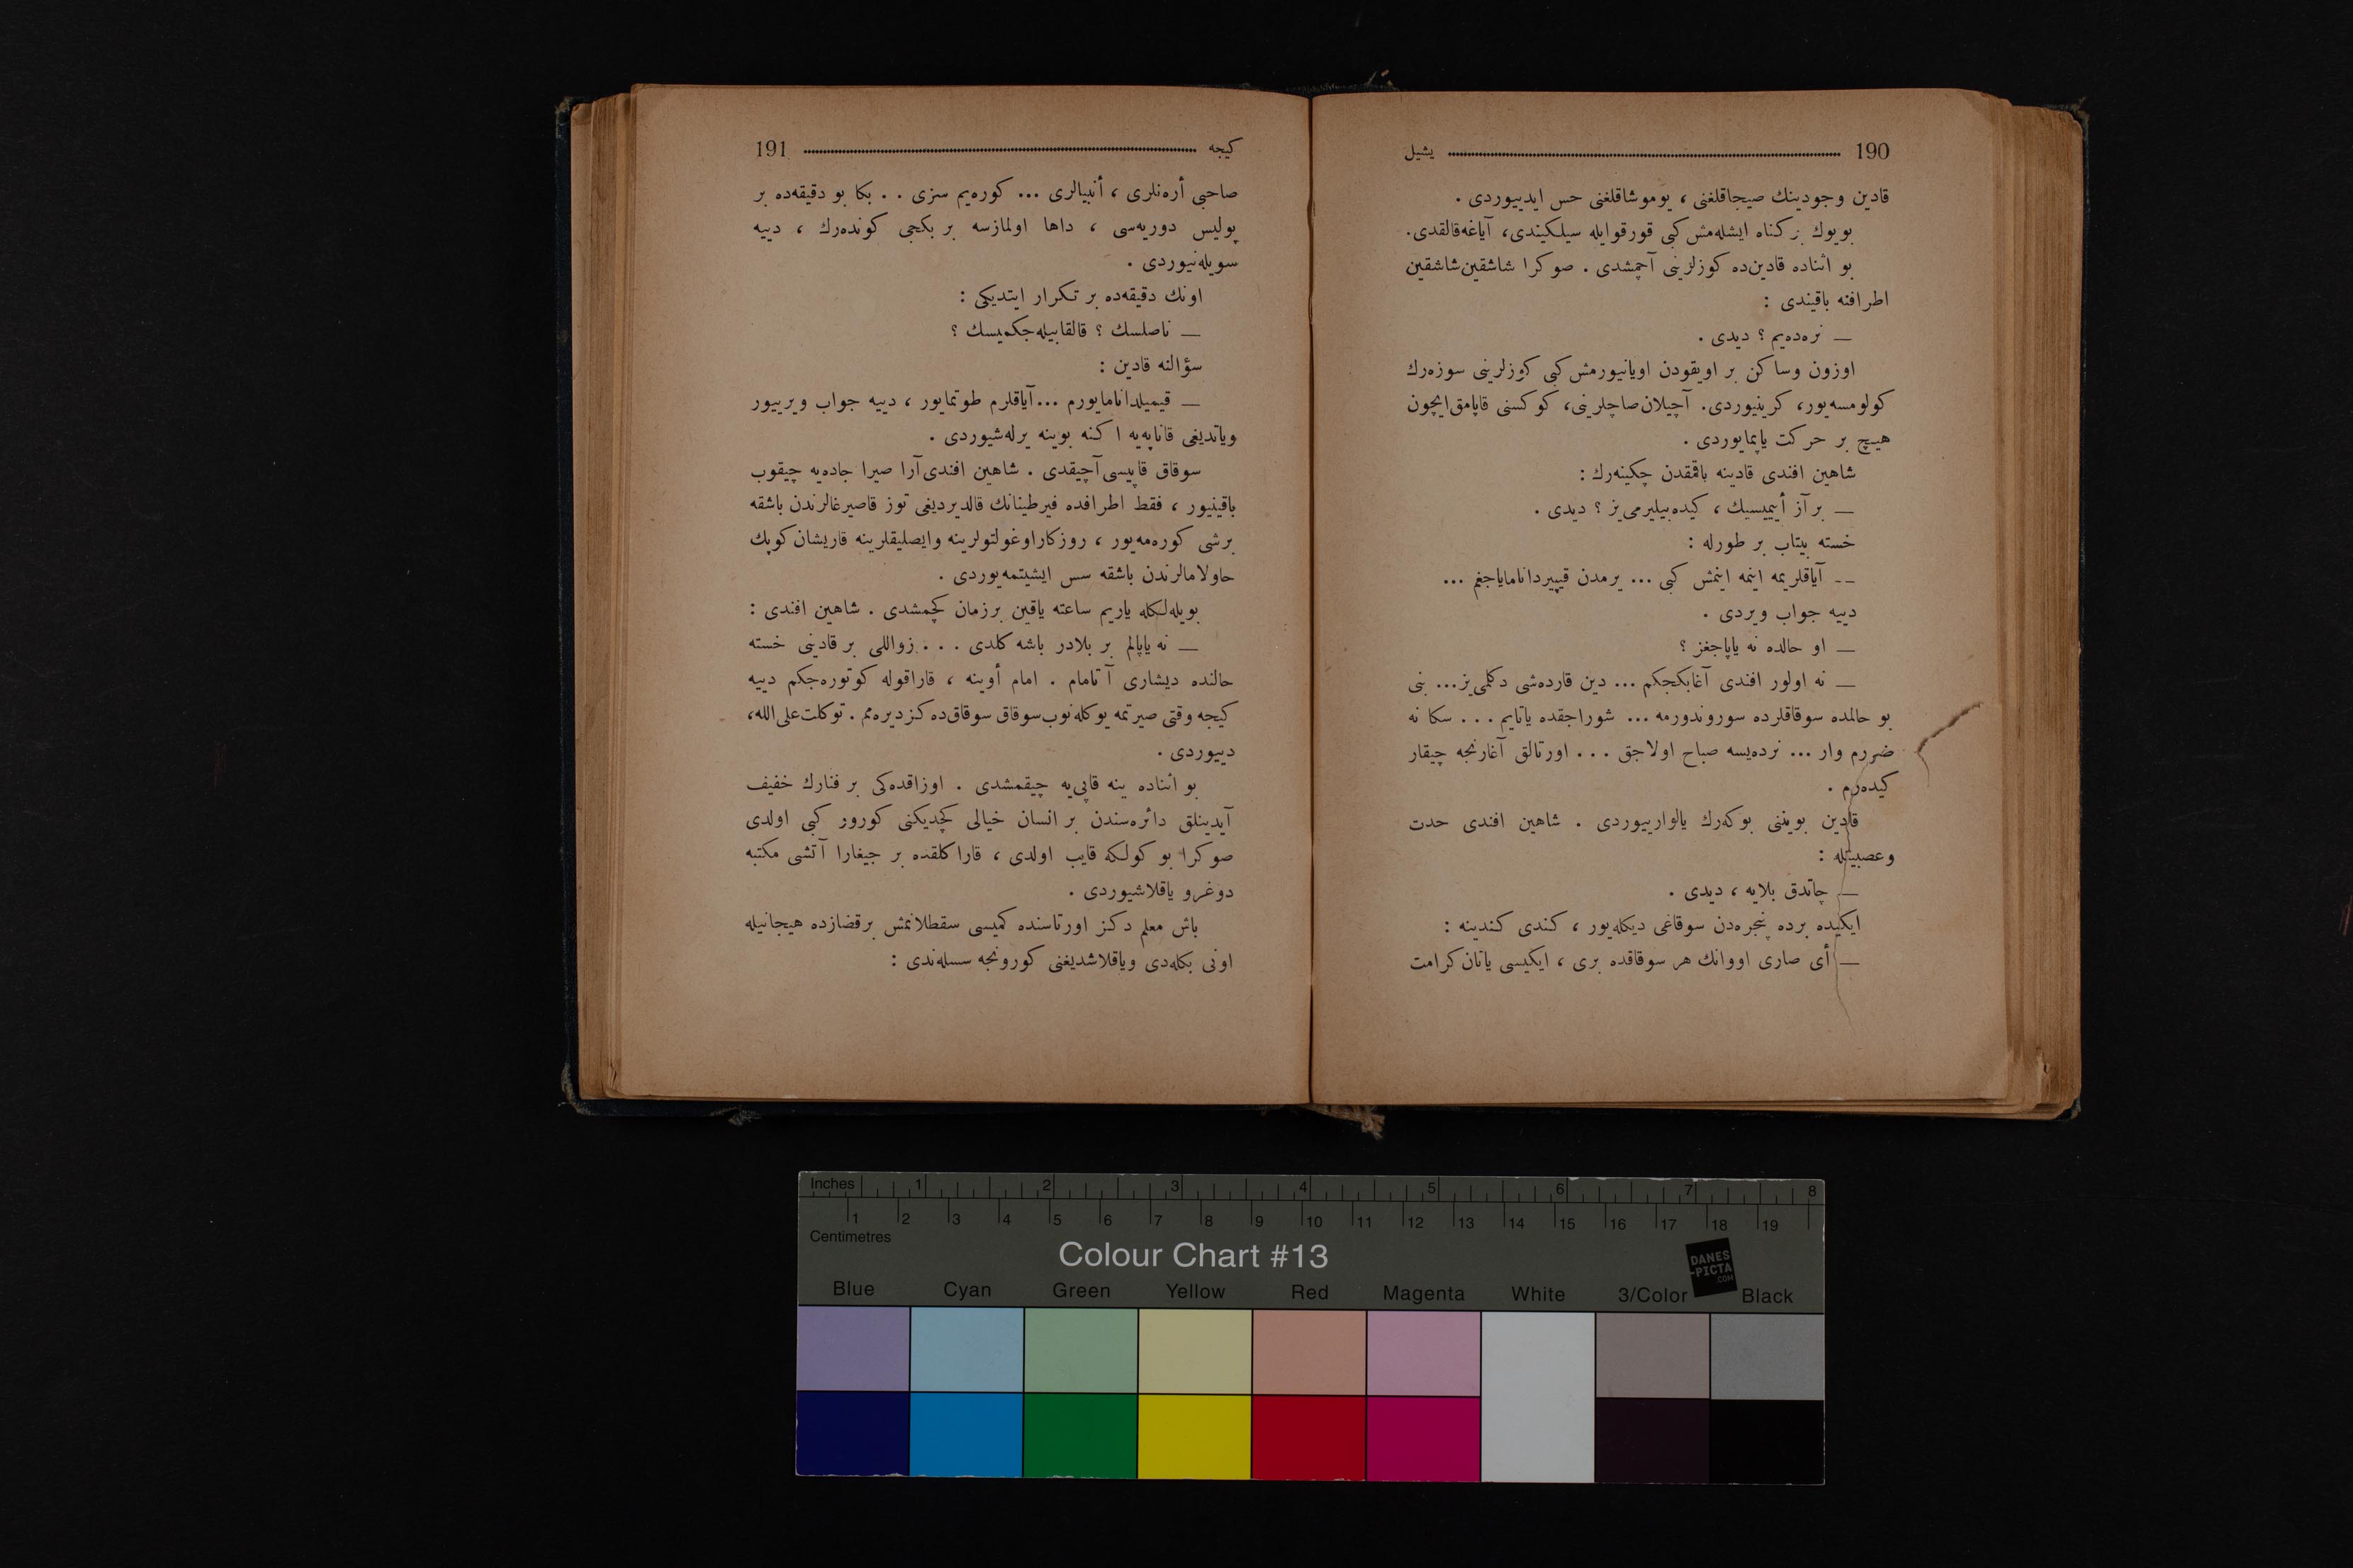 190 يشيل
قادين وجودينك صيجاقلغنى ، يوموشاقلغنى حس ايدييوردى .
بويوك بر كناه ايشله‌مش كبى قورقوايله سيلكيندى، آياغه‌قالقدى.
بو اثناده قادين‌ده كوزلرينى آچمشدى . صوكرا شاشقين‌شاشقين
اطرافنه باقيندى :
— نره‌ده‌يم ؟ ديدى .
اوزون وساكن بر اويقودن اويانيورمش كبى كوزلرينى سوزه‌رك
كولومسه‌يور، كرينيوردى. آچيلان‌صاچلرينى، كوكسنى قاپامق‌ايچون
هيچ بر حركت ياپمايوردى .
شاهين افندى قادينه باقمقدن چكينه‌رك :
— بر آز أييميسيك ، كيده‌بيليرمى‌يز ؟ ديدى .
خسته بيتاب بر طورله :
-- آياقلريمه اينمه اينمش كبى ... يرمدن قيپيرداناماياجغم ...
دييه جواب ويردى .
— او حالده نه ياپاجغز ؟
— نه اولور افندى آغابكجكم ... دين قارده‌شى دكلمى‌يز... بنى
بو حالمده سوقاقلرده سوروندورمه ... شوراجقده ياتايم . . . سكا نه
ضررم وار ... نرده‌يسه صباح اولاجق . . . اورتالق آغارنجه چيقار
كيده‌رم .
قادين بويننى بوكه‌رك يالوارييوردى . شاهين افندى حدت
وعصبيتله :
— چاتدق بلايه ، ديدى .
ايكيده برده پنجره‌دن سوقاغى ديكله‌يور ، كندى كندينه :
— أى صارى اووانك هر سوقاقده برى ، ايكيسى ياتان‌كرامت
كيجه 191
صاحبى أره‌نلرى ، أنبيالرى ... كوره‌يم سزى . . بكا بو دقيقه‌ده بر
پوليس دوريه‌سى ، داها اولمازسه بر بكجى كونده‌رك ، دييه
سويله‌نيوردى .
اونك دقيقه‌ده بر تكرار ايتديكى :
— ناصلسك ؟ قالقابيله‌جكميسك ؟
سؤالنه قادين :
— قيميلدانامايورم ... آياقلرم طوتمايور ، دييه جواب ويرييور
وياتديغى قاناپه‌يه اكنه بوينه يرله‌شيوردى .
سوقاق قاپيسى‌آچيقدى . شاهين افندى‌آرا صيرا جاده‌يه چيقوب
باقينيور ، فقط اطرافده فيرطينانك قالديرديغى توز قاصيرغالرندن باشقه
برشى كوره‌مه‌يور ، روزكاراوغولتولرينه وايصليقلرينه قاريشان‌كوپك
حاولامالرندن باشقه سس ايشيتمه‌يوردى .
بويله‌لكله ياريم ساعته ياقين برزمان كچمشدى . شاهين افندى :
— نه ياپالم بر بلادر باشه كلدى . . . زواللى بر قادينى خسته
حالنده ديشارى آتامام . امام أوينه ، قاراقوله كوتوره‌جكم دييه
كيجه وقتى صيرتمه يوكله‌نوب‌سوقاق سوقاق‌ده كزديره‌مم . توكلت‌على‌الله،
دييوردى .
بو اثناده ينه قاپى‌يه چيقمشدى . اوزاقده‌كى بر فنارك خفيف
آيدينلق دائره‌سندن بر انسان خيالى كچديكنى كورور كبى اولدى
صوكرا بو كولكه قايب اولدى ، قاراكلقده بر جيغارا آتشى مكتبه
دوغرو ياقلاشيوردى .
باش معلم دكز اورتاسنده كميسى سقطلانمش برقضازده هيجانيله
اونى بكله‌دى وياقلاشديغنى كورونجه سسله‌ندى :
Inches 1 2 3 4 5 6 7 8
1 2 3 4 5 6 7 8 9 10 11 12 13 14 15 16 17 18 19
Centimetres
Colour Chart #13
DANES
-PICTA
.COM
Blue Cyan Green Yellow Red Magenta White 3/Color Black